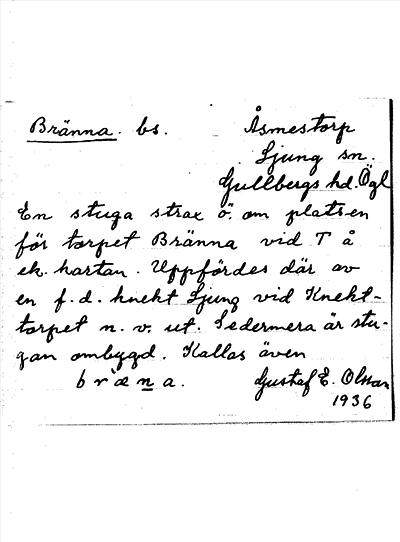 Bränna. bs. Åsmestorp
Ljung sn.
Gullbergs hd. Ögl
En stuga strax ö. om platsen
för torpet Bränna vid T å
ek. kartan. Uppfördes där av
en f.d. knekt Ljung vid Knekt-
torpet n. v. ut. Sedermera är stu-
gan ombygd. Kallas även
bræna. Gustaf E. Olsson
1936